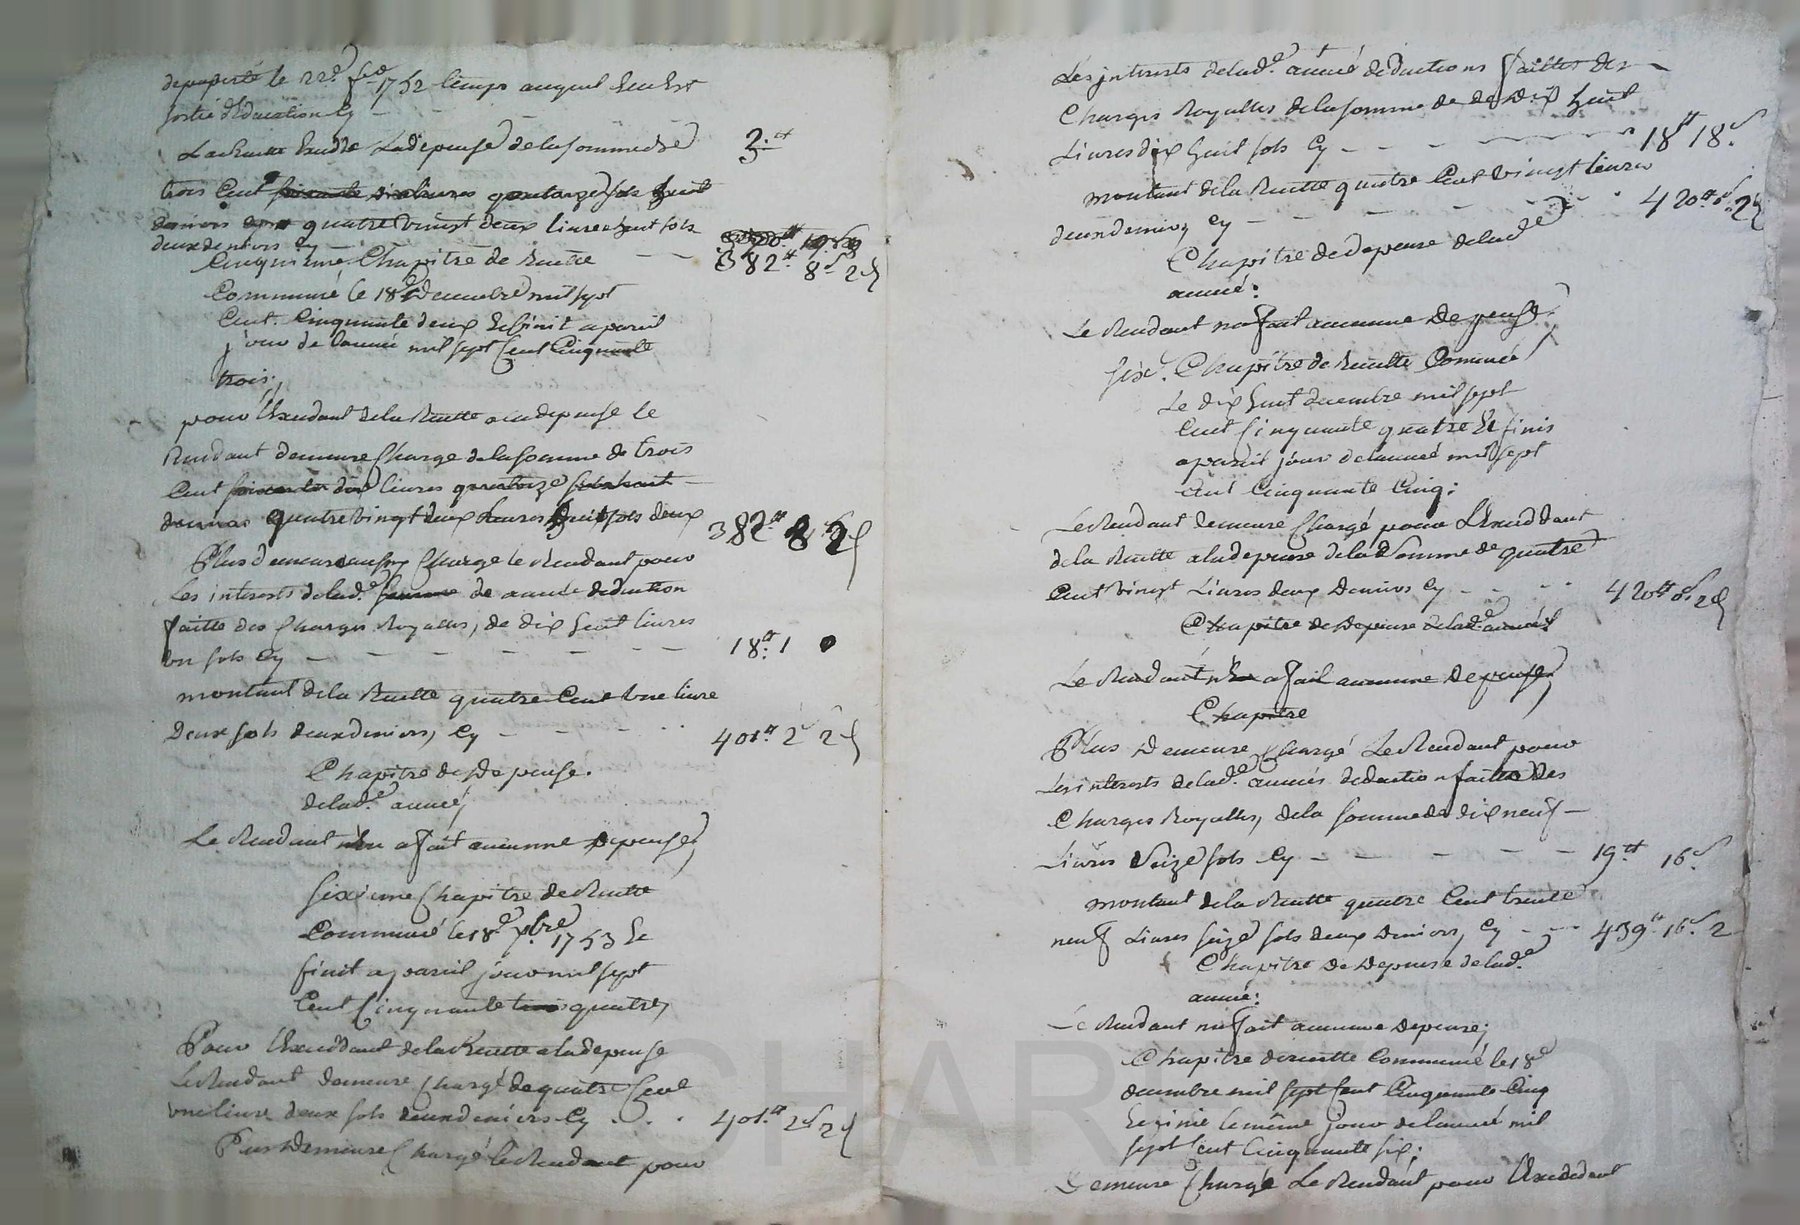 le 22e 1752 temps auquel
sortie d'Education Cy - -
La Recette Excedde La depense de la somme de 3.tt
trois Cent soixante dix livres quatorze sols huit
deniers quatre vingt deux livres huit sols
deux deniers cy - - 382tt. 8s 2d
Cinquieme Chapitre de Recette
Commencé le 18e Decembre mil sept
Cent Cinquante deux & finit a pareil
jour de l'année mil sept Cent Cinquante
trois;
pour l'Excedant de la Recette a la depense le
Rendant demeure Charge de la somme de trois
Cent soixante dix livres quatorze sols huit
deniers quatre vingt deux livres huit sols deux 382tt 8 2d
Plus demeure Charge le Rendant pour
Les interests de lade. somme de année deduction
faitte des Charges Royalles, de dix huit livres
un sols Cy - - - - - - - 18tt. 1
montant de la Recette quatre Cent Une livre
Deux sols deux deniers, Cy - - - - 401tt 2s 2d
Chapitre de Depense.
de lade. année,
Le Rendant n'en a fait aucunne depense,
Sixieme Chapitre de Recette
Commencé le 18e xbre 1753 &
finit a pareil jour mil sept
Cent Cinquante trois quatre,
Pour l'Excedant de la Recette a la depense
Le Rendant demeure Chargé de quatre Cent
une livre deux sols deux deniers Cy . . . 401tt 2s 2d
Plus Demeure Chargé le Rendant pour
Les interests de lade. année deductions faittes des
Charges Royalles de la somme de de Dix huit
Livres dix huit sols Cy - - - - - - - 18tt 18s.
montant de la Recette quatre Cent vingt livres
deux deniers cy - - - - - - - 420tt 0s. 2d
Chapitre de depense de lade
année:
Le Rendant n'a fait aucunne Depense.
Sixe. Chapitre de Recette Commencé
Le dix huit decembre mil sept
Cent Cinquante quatre & finis
a pareil jour de l'année mil sept
Cent Cinquante Cinq:
Le Rendant demeure Chargé pour L'Exceddant
de la Recette a la depense de la de Somme de quatre
Cent vingt Livres deux Deniers Cy - - - - 420tt 0s. 2d
Chapitre de Depense de lade. année
Le Rendant n'en a fait aucunne Depense,
Chapitre
Plus Demeure Chargé Le Rendant pour
Les interests de lade. année deduction faitte Des
Charges Royalles, de la somme de dix neuf -
Livres Seize sols Cy - - - - - - 19tt 16s
montant de la Recette quatre Cent trente
neuf Livres seize sols deux Deniers, Cy - - - 439tt. 16s. 2
Chapitre de Depense de lade.
année:
Le Rendant n'a fait aucunne depense;
Chapitre de recette Commencé le 18e
decembre mil sept Cent Cinquante Cinq
& finie le même jour de l'année mil
sept Cent Cinquante six;
Demeure Chargé Le Rendant pour l'Excedant